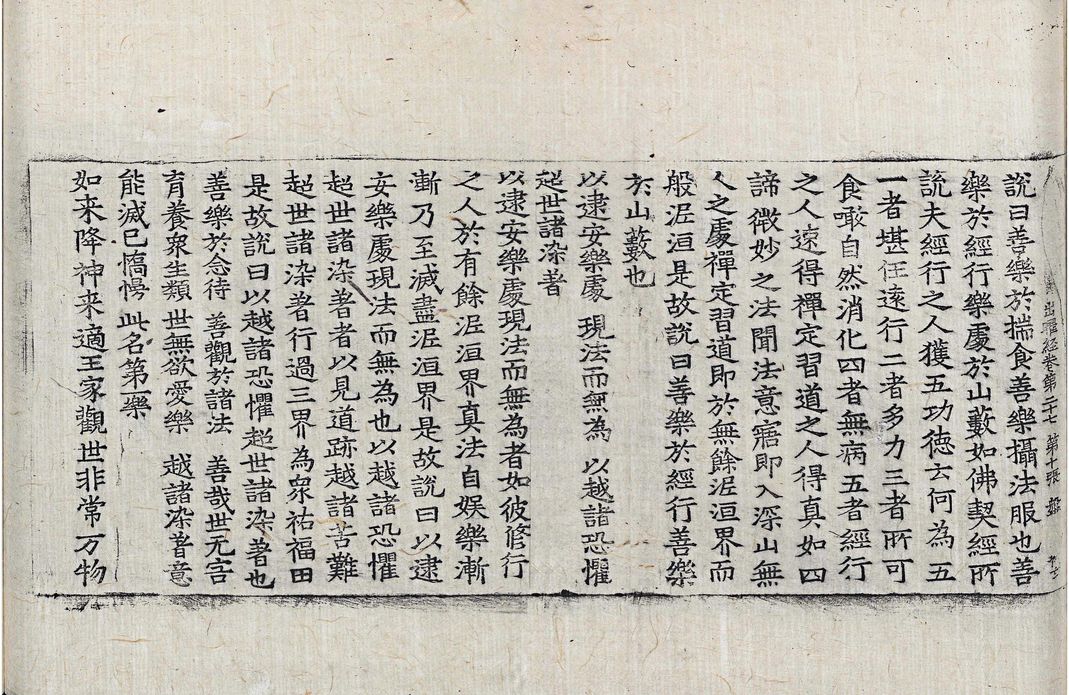 出曜經卷第二十七 第十張 盤
說曰善樂於揣食善樂攝法服也善
樂於經行樂處於山藪如佛契經所
說夫經行之人獲五功德云何為五
一者堪任遠行二者多力三者所可
食噉自然消化四者無病五者經行
之人速得禪定習道之人得真如四
諦微妙之法聞法意寤即入深山無
人之處禪定習道即於無餘泥洹界而
般泥洹是故說曰善樂於經行善樂
於山藪也
以逮安樂處 現法而無為 以越諸恐懼
超世諸染著
以逮安樂處現法而無為者如彼修行
之人於有餘泥洹界真法自娛樂漸
漸乃至滅盡泥洹界是故說曰以逮
安樂處現法而無為也以越諸恐懼
超世諸染著者以見道跡越諸苦難
超世諸染著行過三界為眾祐福田
是故說曰以越諸恐懼超世諸染著也
善樂於念待 善觀於諸法 善哉世无害
育養衆生類 世無欲愛樂 越諸染著意
能滅已憍慢 此名第一樂
如来降神来適王家觀世非常万物